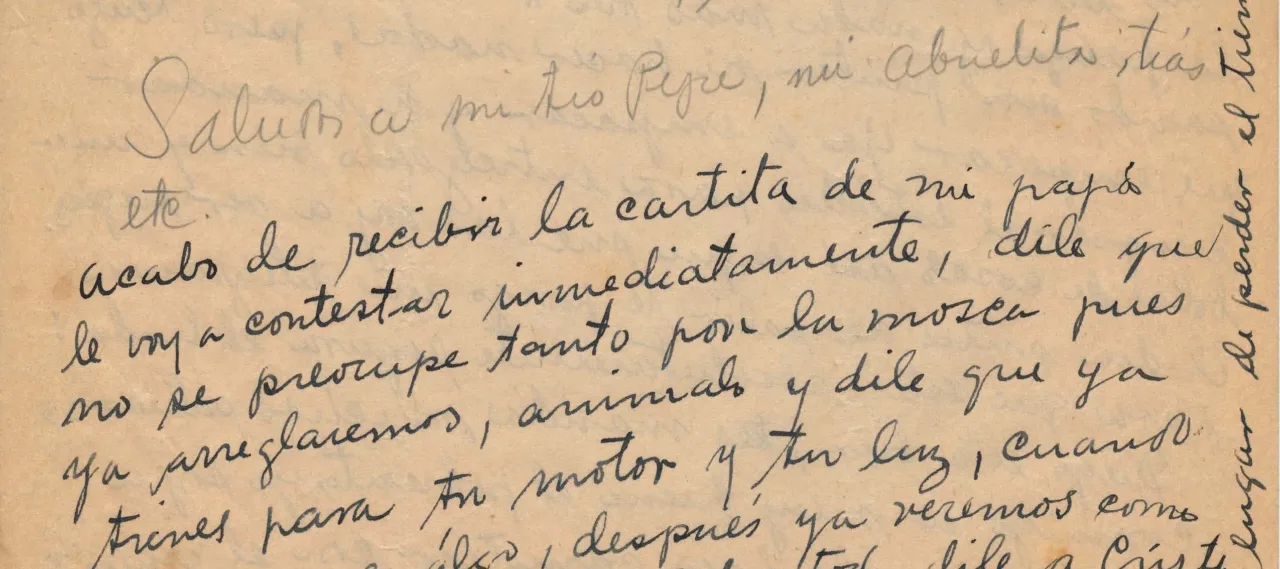 Saludos a mi tio Pepe, mi abuelita, tías
etc.
acabo de recibir la cartita de mi papá
le voy a contestar inmediatamente, dile que
no se preocupe tanto por la mosca pues
ya arreglaremos, animalo y dile que ya
tienes para tu motor y tu luz, cuando
algo, después ya veremos como
dile a Cristi
lugar de perder el tiem